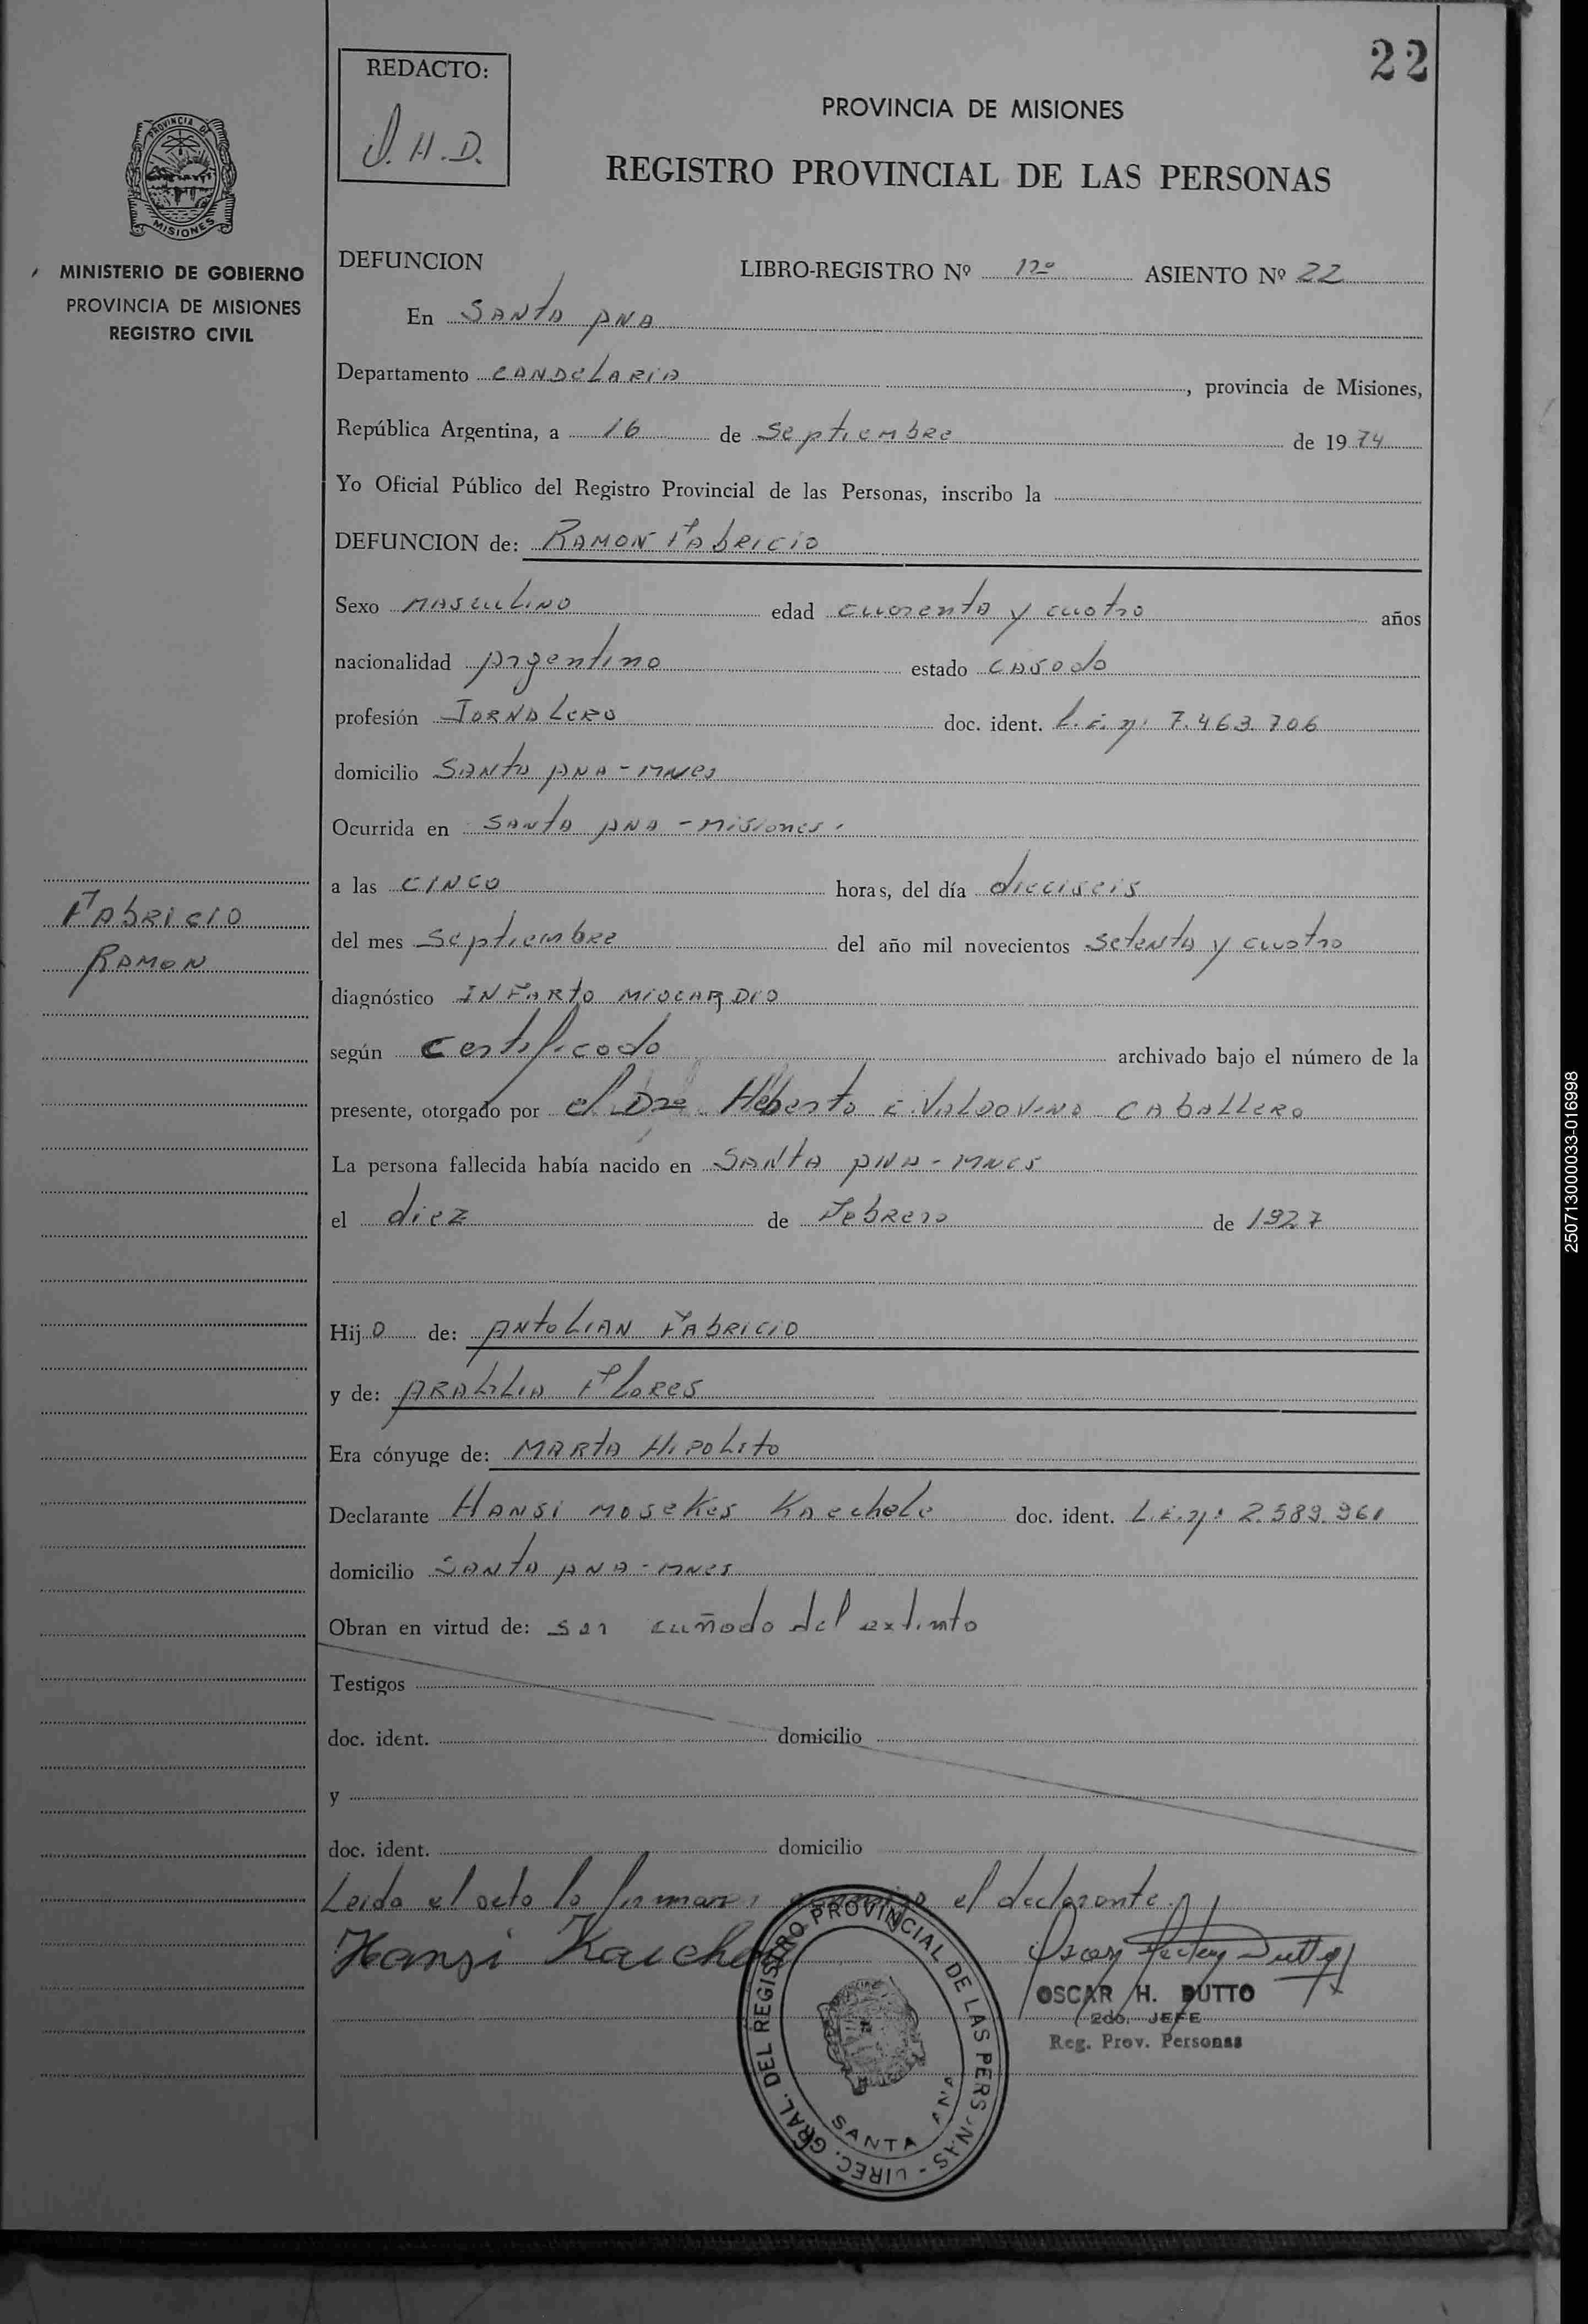 22
REDACTO:
O. H. D.
PROVINCIA DE MISIONES
REGISTRO PROVINCIAL DE LAS PERSONAS
PROVINCIA DE
MISIONES
MINISTERIO DE GOBIERNO
PROVINCIA DE MISIONES
REGISTRO CIVIL
DEFUNCION LIBRO-REGISTRO Nº ASIENTO Nº 22
En SANTA ANA
Departamento CANDELARIA, provincia de Misiones,
República Argentina, a 16 de Septiembre de 1974
Yo Oficial Público del Registro Provincial de las Personas, inscribo la
DEFUNCION de: RAMON FABRICIO
Sexo MASCULINO edad cuarenta y cuatro años
nacionalidad Argentino estado CASADO
profesión JORNALERO doc. ident. L.E.Nº 7.463.706
domicilio SANTA ANA - MNES
Ocurrida en SANTA ANA - Misiones.
a las CINCO horas, del día dieciseis
Fabricio
Ramon
del mes Septiembre del año mil novecientos setenta y cuatro
diagnóstico INFARTO MIOCARDIO
según Certificado archivado bajo el número de la
presente, otorgado por el Dr. Heberto E. VALDOVINO CABALLERO
La persona fallecida había nacido en SANTA ANA - MNES
el diez de Febrero de 1927
Hijo de: ANTOLIAN FABRICIO
y de: Flores
Era cónyuge de: MARTA HIPOLITO
Declarante HANSI MOSEKES KAECHELE doc. ident. L.E.Nº 2.589.961
domicilio SANTA ANA - MNES
Obran en virtud de: ser cuñado del extinto
Testigos
doc. ident. domicilio
y
doc. ident. domicilio
Leida el acta la firman el declarante.
Hansi Kaechele
OSCAR H. DUTTO
2do. JEFE
Reg. Prov. Personas
DIREC. GRAL. DEL REGISTRO PROVINCIAL DE LAS PERSONAS
SANTA ANA
250713000033-016998